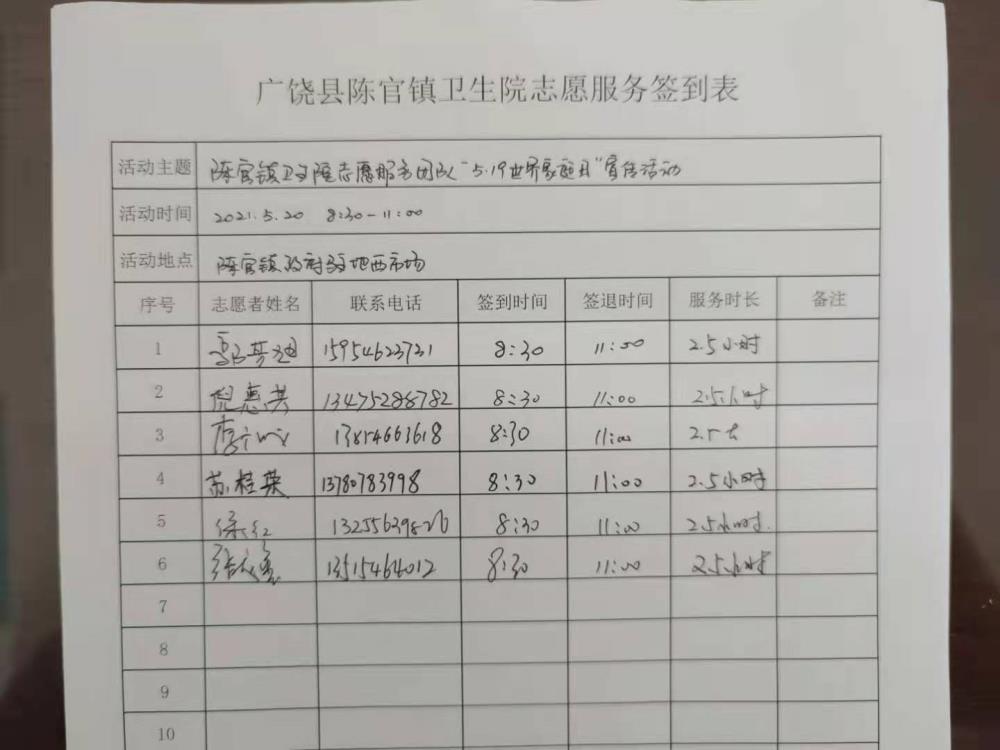 广饶县陈官镇卫生院志愿服务签到表
活动主题 陈官镇卫生院志愿服务团队"5.19世界家庭日"宣传活动
活动时间 2021.5.20 8:30-11:00
活动地点 陈官镇政府驻地西市场
序号 志愿者姓名 联系电话 签到时间 签退时间 服务时长 备注
1 15954623721 8:30 11:00 2.5小时
2 倪惠芳 13475288782 8:30 11:00 2.5小时
3 13854663618 8:30 11:00
4 苏桂英 13780783998 8:30 11:00 2.5小时
5 徐红 13255639826 8:30 11:00 2.5小时.
6 13515464012 8:30 11:00 2.5小时
7
8
9
10